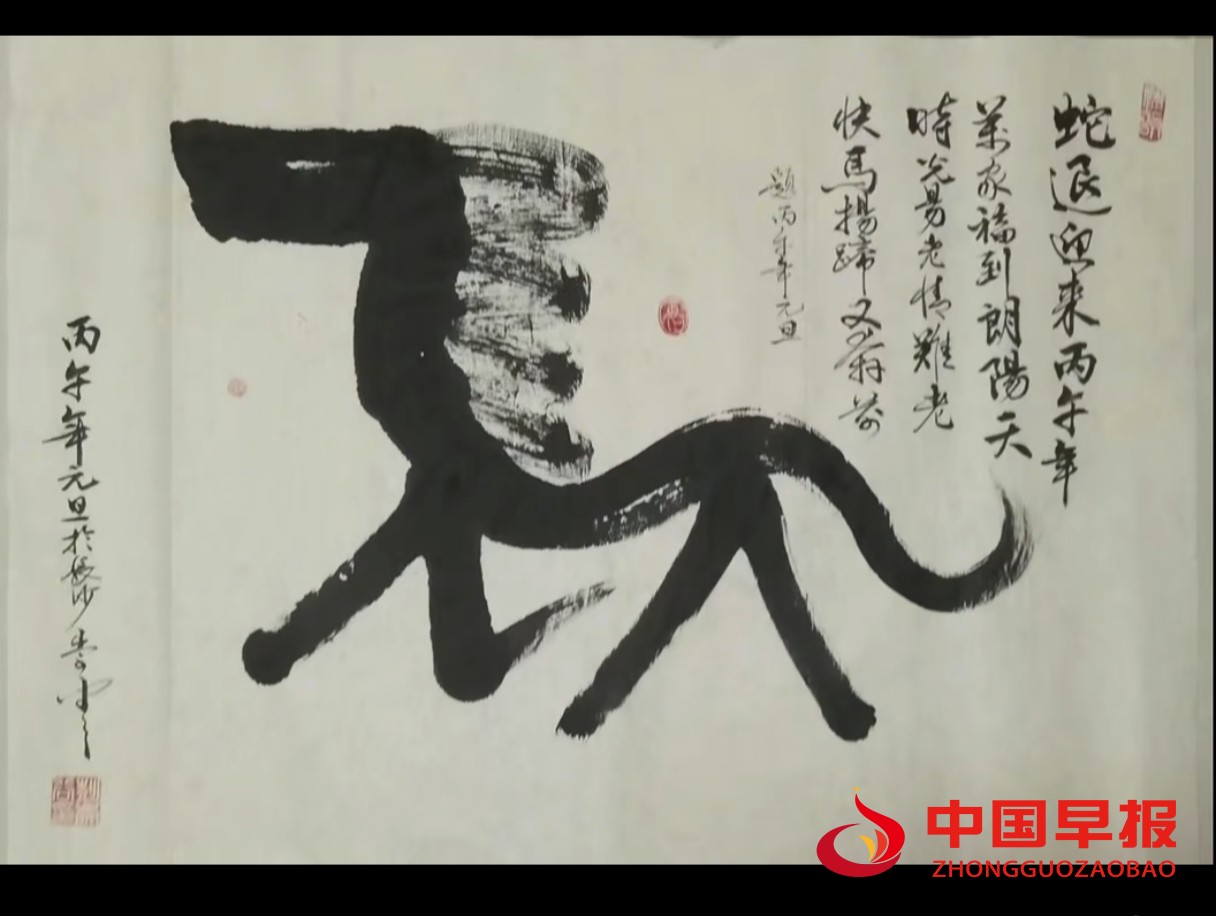 蛇退迎来丙午年
萬家福到朗陽天
時光易老情難老
快馬揚蹄又奔前
題丙午年元旦
怡
丙午年元旦於長沙
中国早报
ZHONGGUOZAOBAO